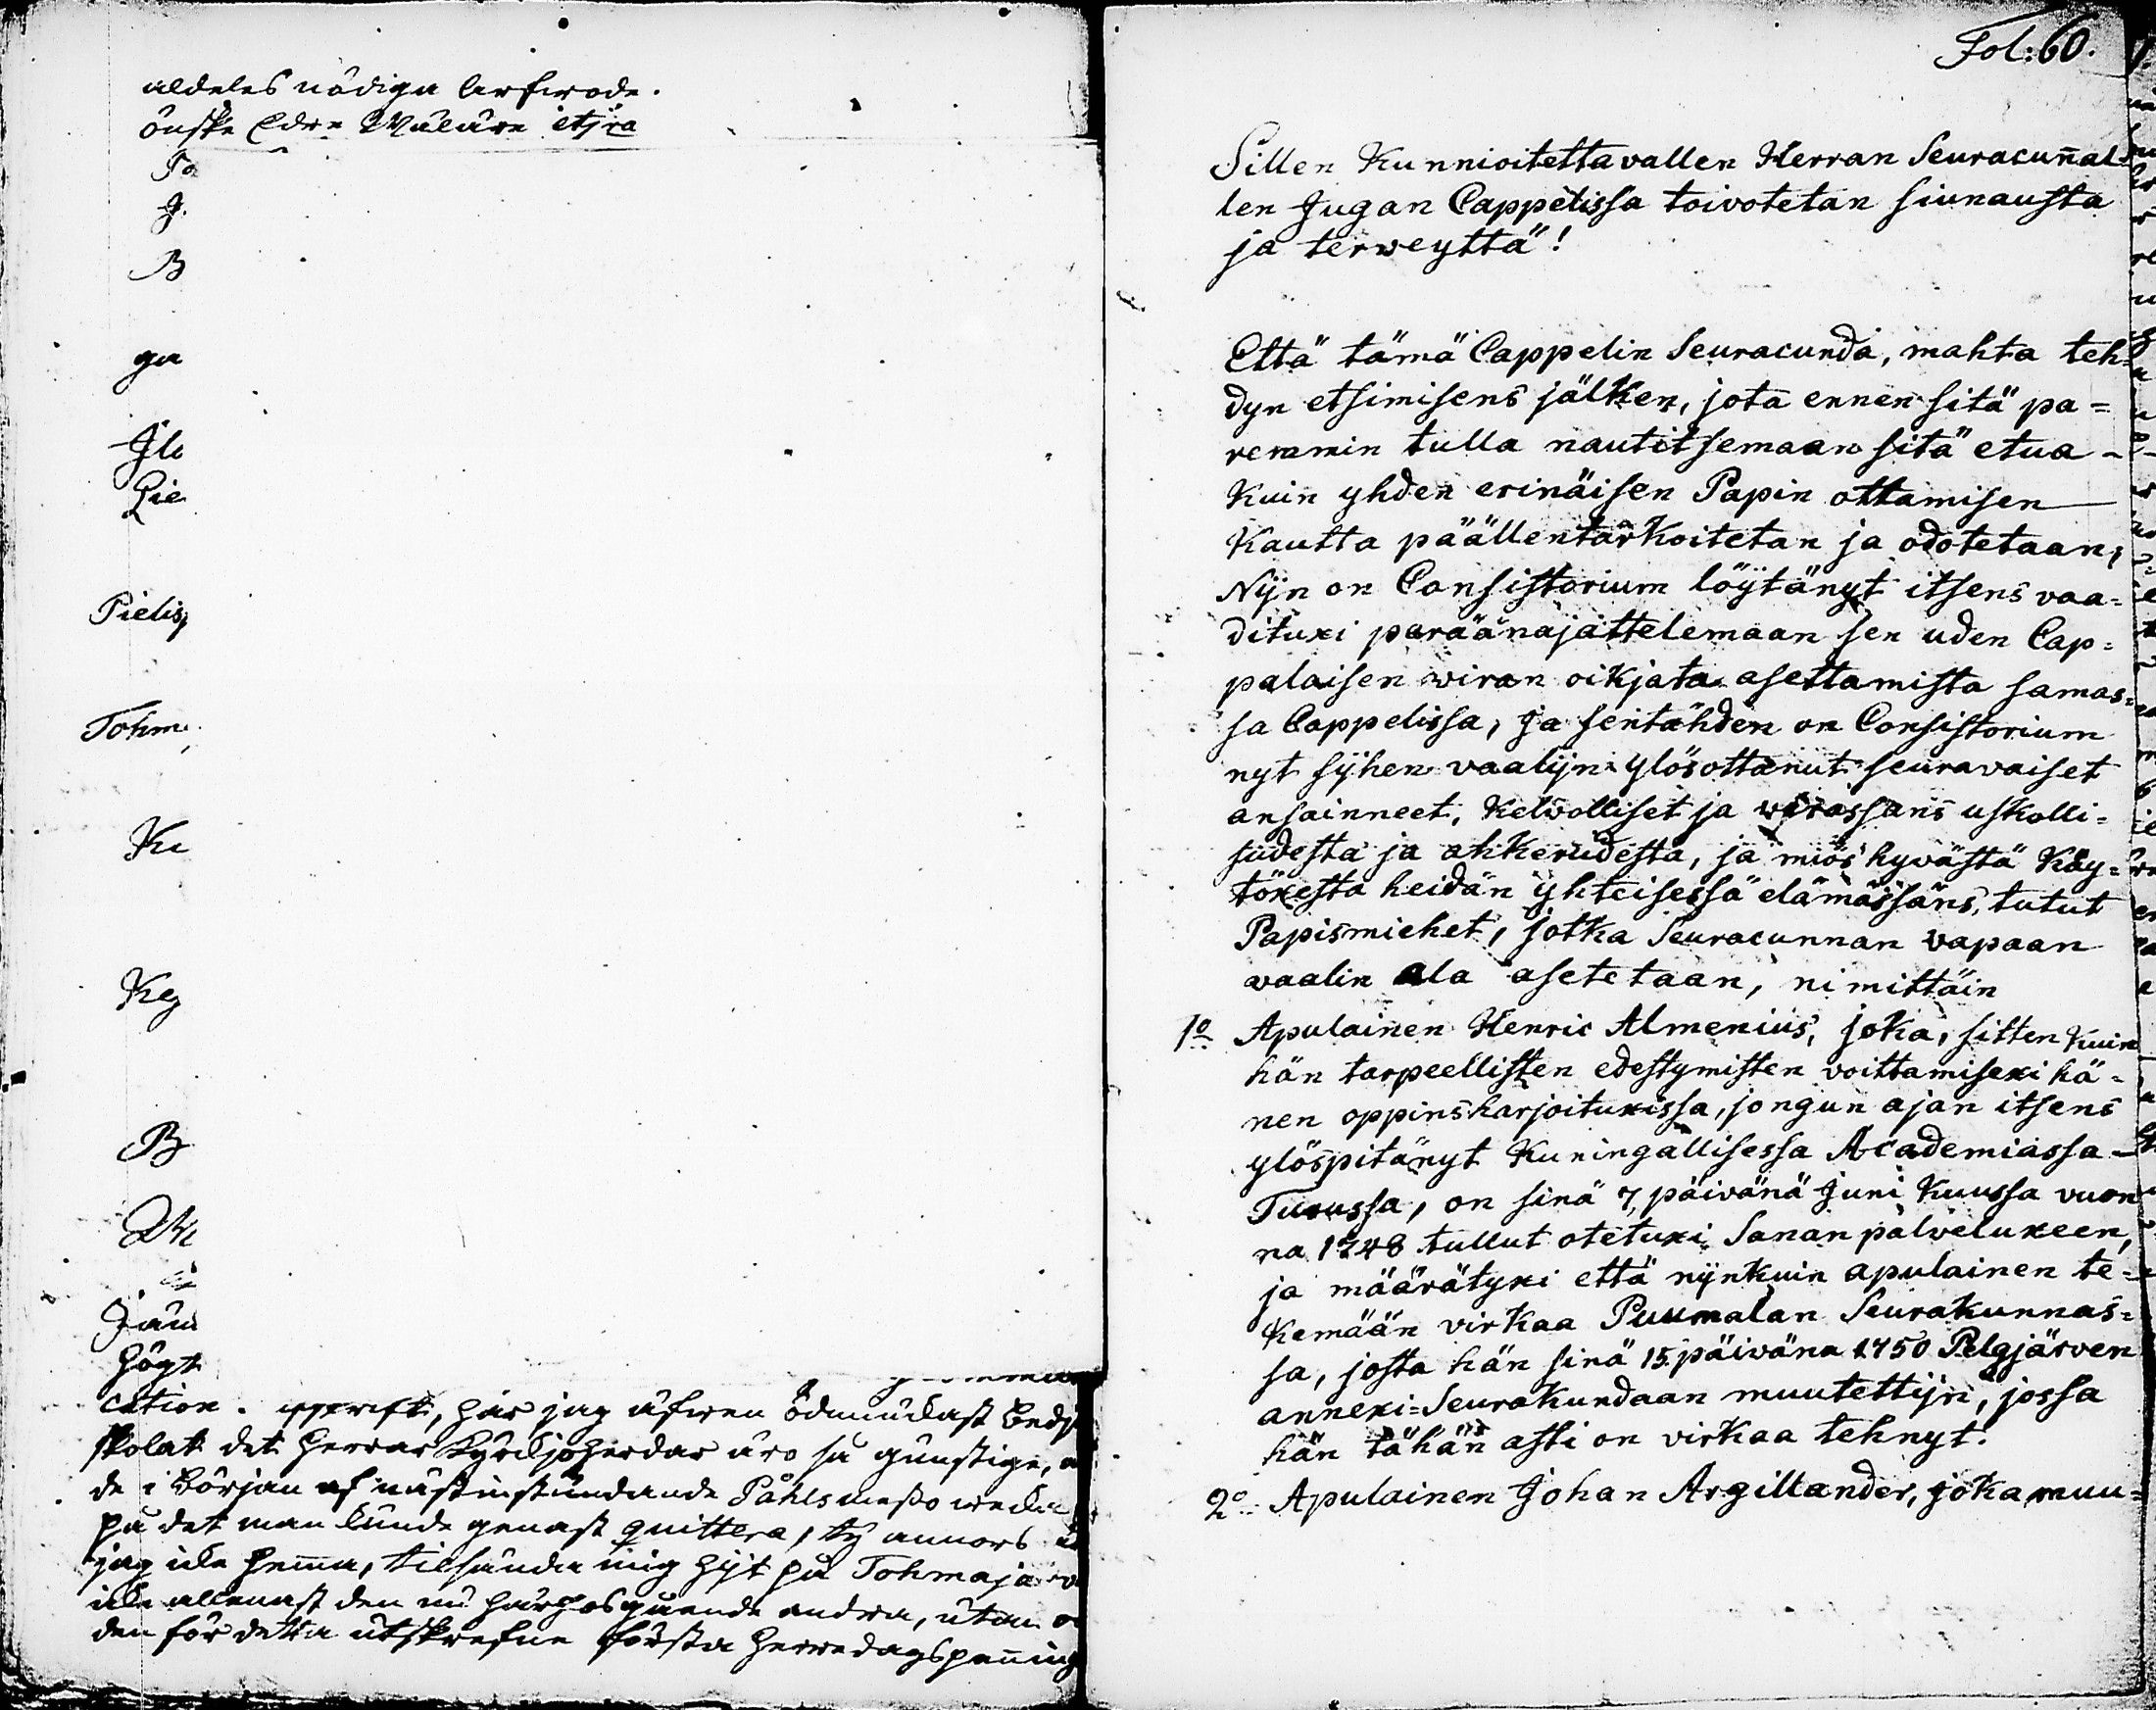 aldeles nödiga
önske Edre etc:ra
To
J.
B
ga
Ilo
Lie
Pielis
Tohm
Ki
Key
B
högt
cation. har jag äfwen ödmiukast
det Herrar Kyrckjoherdar äro så gunstige,
de i början af nästinstundande Påhlsmesso
på det man kunde genast quittera, ty annors
jag icke hema, tilsända mig hijt på Tohmajärv
icke allenast den nu andra, utan
den för detta utskrefne första herredagspenning
Fol: 60.
Sillen Kunnioitettavallen Herran Seuracuñal-
len Jugan Cappelissa toivotetan siunausta
ja terweyttä!
Että tämä Cappelin Seuracunda, mahta teh-
dyn etsimisens jälken, jota ennen sitä pa=
remmin tulla nautitsemaan sitä etua
Kuin yhden erinäisen Papin ottamisen
Kautta päällentarkoitetan ja odotetaan,
Nijn on Consistorium löytänyt itsens vaa=
dituxi peräänajattelemaan sen uden Cap=
palaisen wiran oikjata asettamista samas=
sa Cappelissa, ja sentähden on Consistorium
nyt sijhen vaalijn ylösottanut seuravaiset
ansainneet, Kelvolliset ja wirassans uskolli=
sudesta ja ahkerudesta, ja miös hyvästä Käy=
töxestä heidän yhteisessä elämässäns, tutut
Papismiehet, jotka Seuracunnan vapaan
waalin ala asetetaan, nimittäin
1o Apulainen Henric Almenius, joka, sitten kuin
hän tarpeellisten edestymisten voittamisexi hä=
nen oppinsharjoituxissa, jongun ajan itsens
ylöspitänyt Kuningallisessa Academiassa
Turussa, on sinä 7 päivänä Juni Kuussa vuon
na 1748 tullut otetuxi Sanan palveluxeen,
ja määrätyxi että nijnkuin apulainen te=
kemään virkaa Puumalan Seurakunnas=
sa, josta hän sinä 15 päiväna 1750 Pelgjärven
annexi=Seurakundaan muutettijn, jossa
hän tähän asti on virkaa tehnyt.
2o Apulainen Johan Argillander, joka muu=